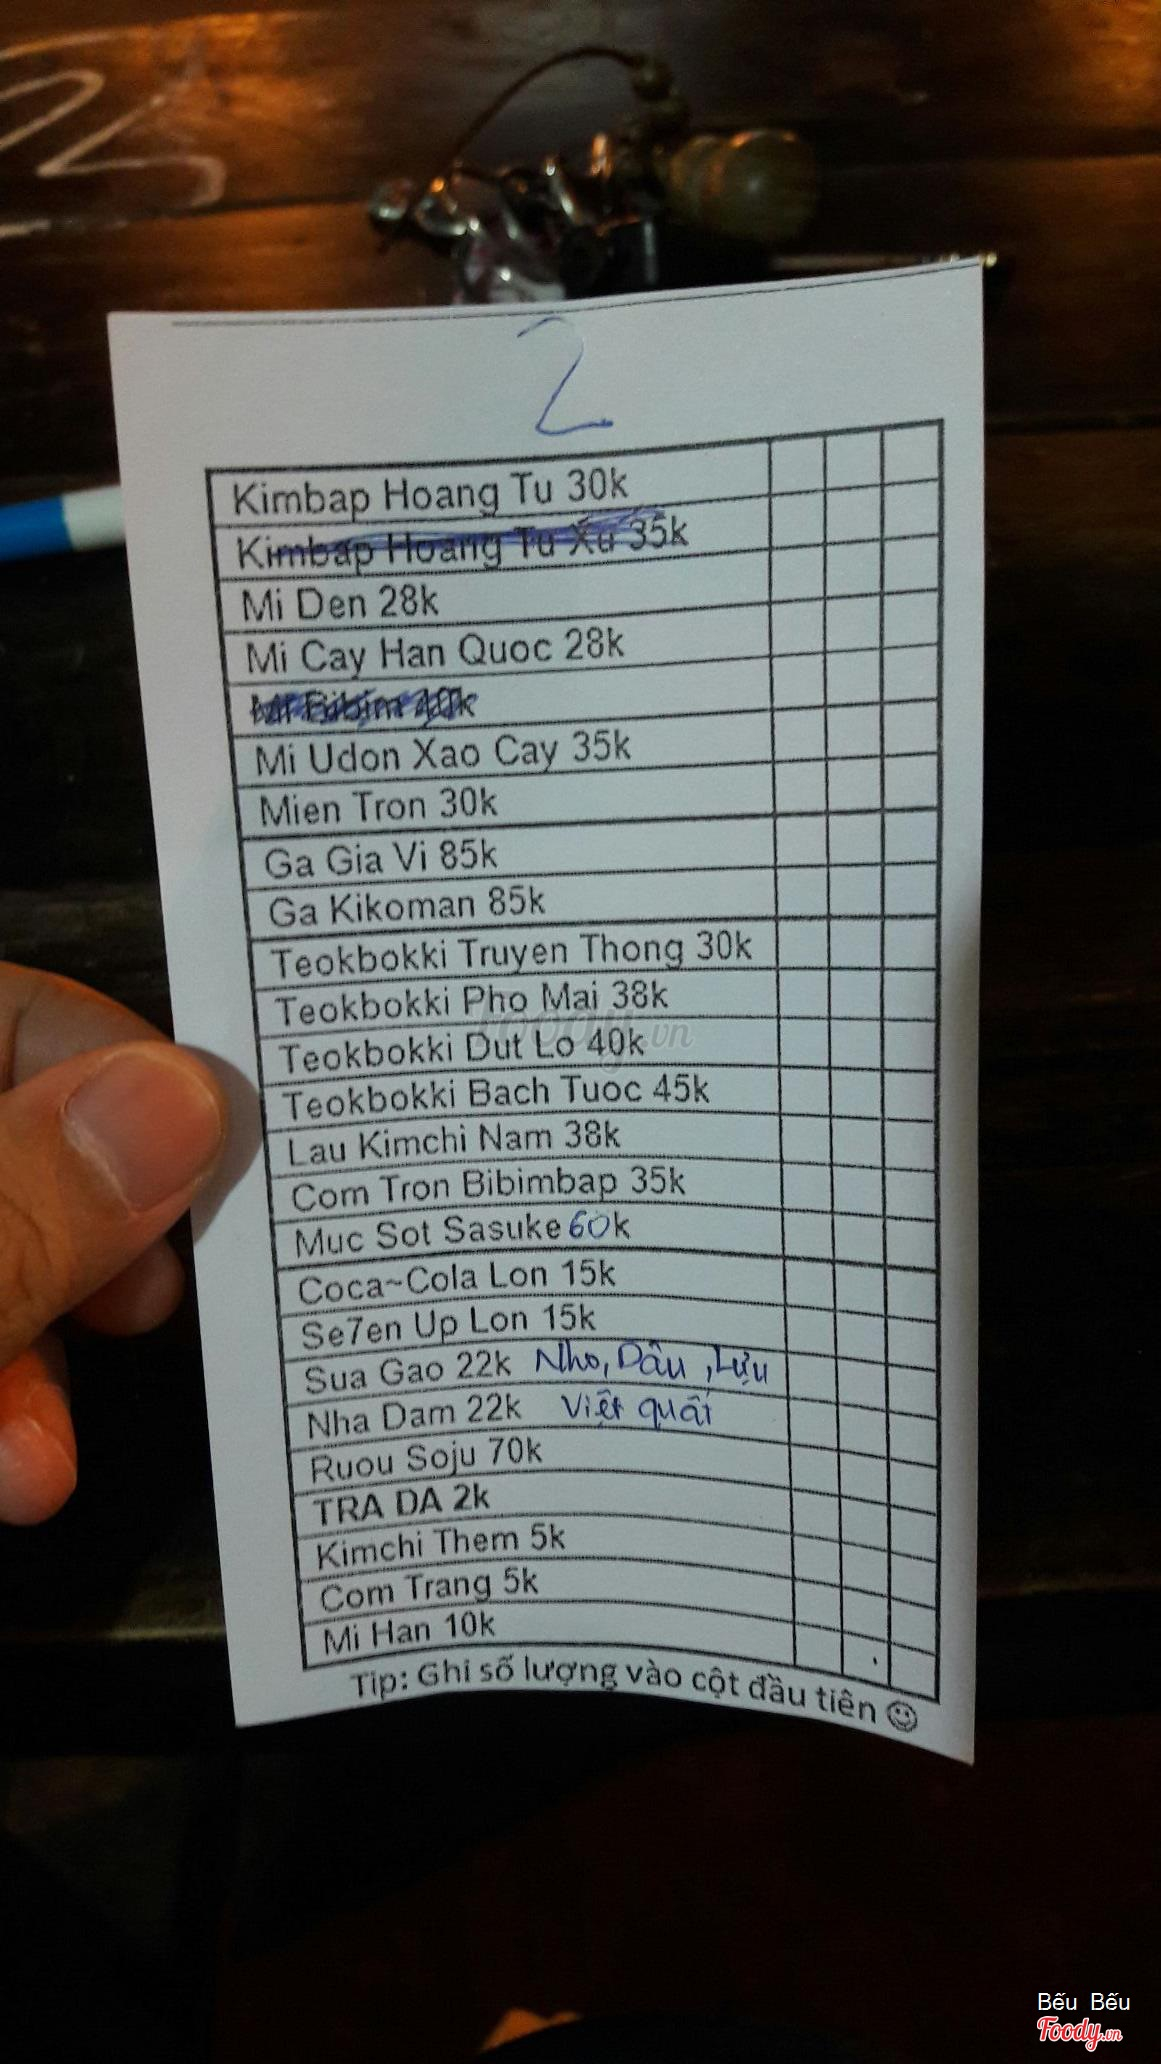 2
Kimbap Hoang Tu 30k
Kimbap Hoang Tu Xu 35k
Mi Den 28k
Mi Cay Han Quoc 28k
Mi Bibim 40k
Mi Udon Xao Cay 35k
Mien Tron 30k
Ga Gia Vi 85k
Ga Kikoman 85k
Teokbokki Truyen Thong 30k
Teokbokki Pho Mai 38k
Foody.vn
Teokbokki Dut Lo 40k
Teokbokki Bach Tuoc 45k
Lau Kimchi Nam 38k
Com Tron Bibimbap 35k
Muc Sot Sasuke 60k
Coca~Cola Lon 15k
Se7en Up Lon 15k
Sua Gao 22k Nho, Dâu, Lựu
Nha Dam 22k Việt quất
Ruou Soju 70k
TRA DA 2k
Kimchi Them 5k
Com Trang 5k
Mi Han 10k
Tip: Ghi số lượng vào cột đầu tiên ☺
Bếu Bếu
Foody.vn